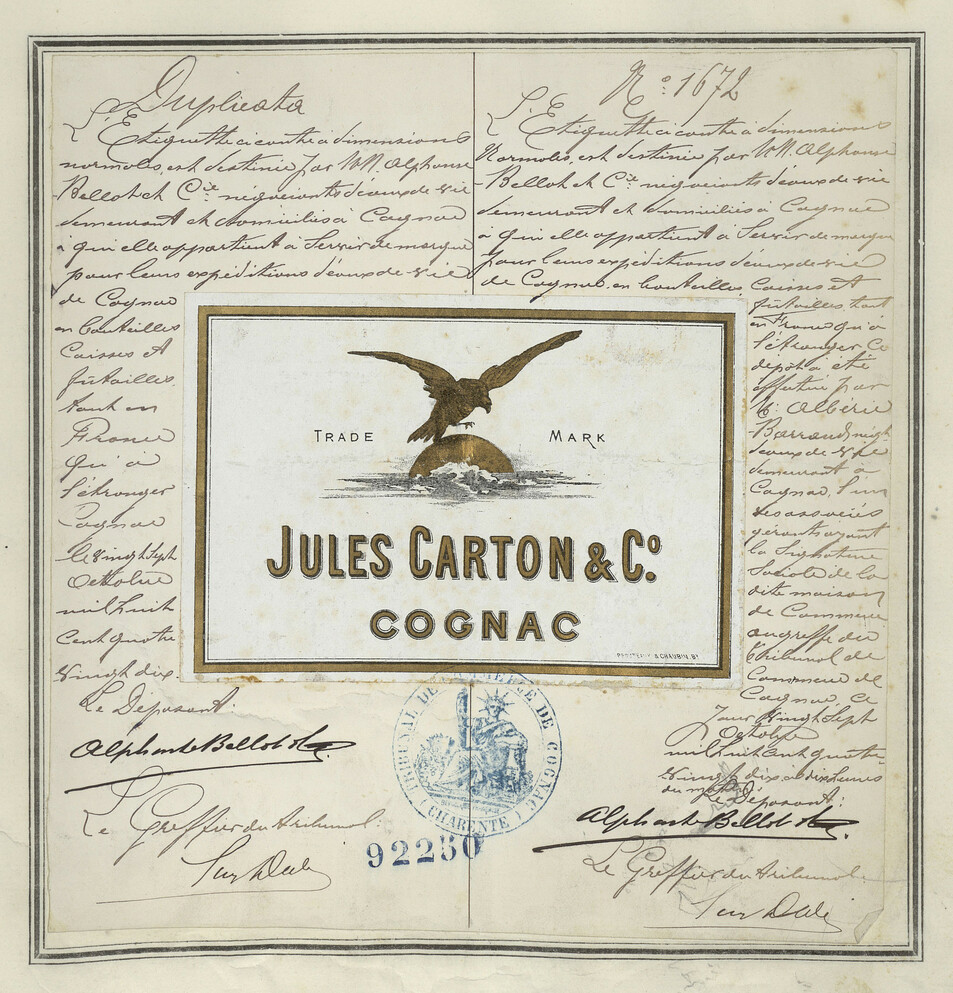 Duplicata
L'Etiquette ci contre à dimensions
normales, est destinée par MM. Alphonse
Bellot et Cie négociants d'eaux de vie
demeurant et domiciliés à Cognac
à qui elle appartient à Servir de marque
pour leurs expéditions d'eaux de vie
de Cognac
en bouteilles
Caisses et
futailles
tant en
France
qu'à
l'étranger
Cognac
le vingt Sept
Octobre
mil huit
Cent quatre
vingt dix.
Le Déposant:
Alphonse Bellot & Cie
Le Greffier du tribunal:
No 1672
L'Etiquette ci contre à dimensions
Normales, est destinée par MM. Alphonse
Bellot et Cie négociants d'eaux de vie
demeurant et domiciliés à Cognac
à qui elle appartient à Servir de marque
pour leurs expéditions d'eaux de vie
de Cognac en bouteilles, caisses et
futailles, tant
en France qu'à
l'étranger Ce
dépôt à été
effectué par
M. Albéric
Barraud négt
d'eaux de vie
demeurant à
Cognac, l'un
des associés
gérants ayant
la Signature
Sociale de la
dite maison
de Commerce
au greffe du
tribunal de
Commerce de
Cognac, ce
Jour Vingt Sept
Octobre
mil huit cent quatre
vingt dix à dix heures
du matin
Le Déposant:
Alphonse Bellot & Cie
Le Greffier du tribunal
TRADE MARK
JULES CARTON & Co.
COGNAC
TRIBUNAL DE COMMERCE DE COGNAC
(CHARENTE)
92250